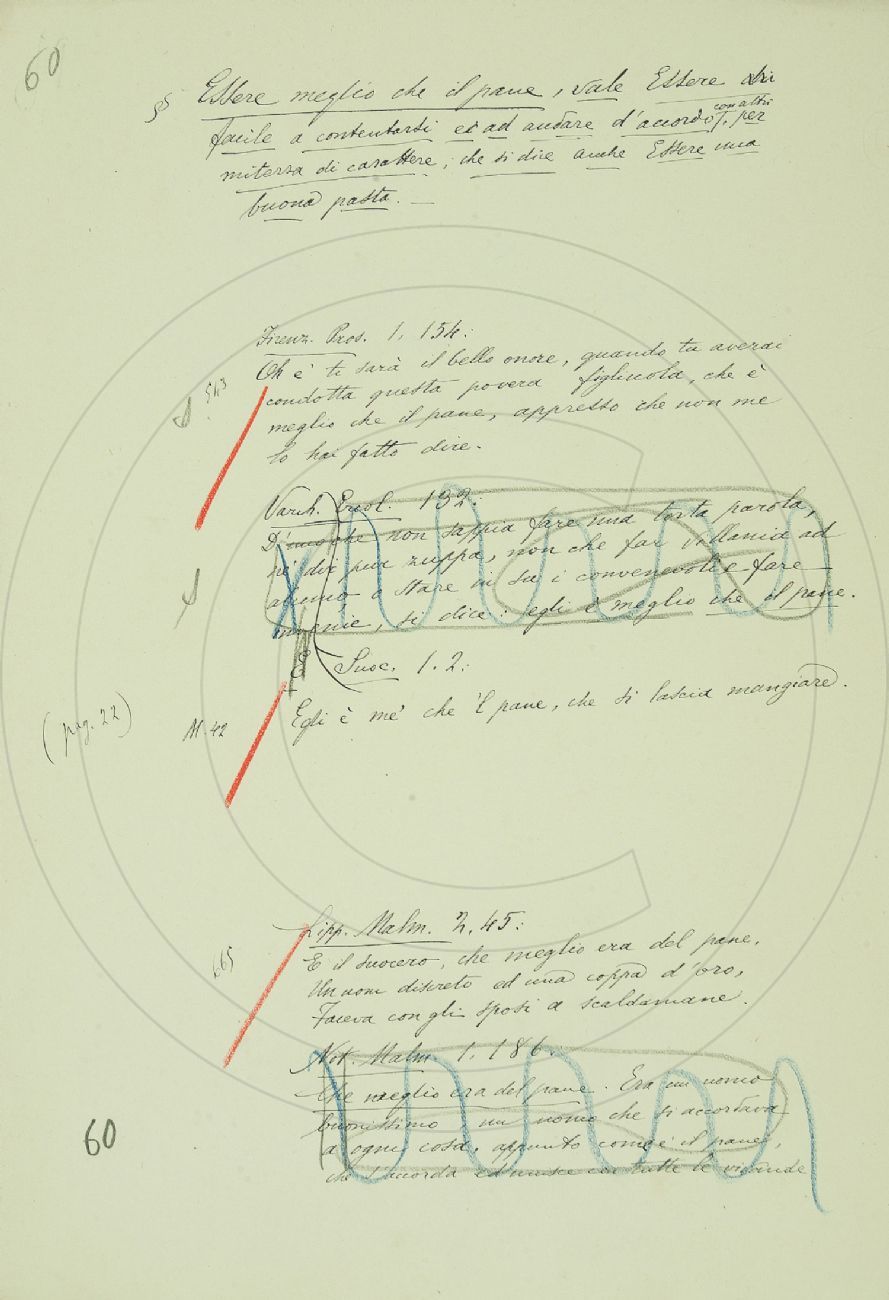 60
§ Essere meglio che il pane, vale Essere
facile a contentarsi ed ad andare d'accordo con altri, per
mitezza di carattere; che si dice anche Essere una
buona pasta. —
Firenz. Pros. 1. 154:
Oh e' ti sarà il bello onore, quando tu averai
543
condotta questa povera figliuola, che è
meglio che il pane, appresso che non me
lo hai fatto dire.
Varch. Ercol. 132:
D'uno che non sappia fare una torta parola,
nè dir pur zuppa, non che far villania ad
alcuno o stare in su i convenevoli e fare
inenie, si dice: egli è meglio che il pane.
E Suoc. 1. 2:
Egli è me' che 'l pane, che si lascia mangiare.
(pag. 22)
M. 42
Lipp. Malm. 2. 45:
E il suocero, che meglio era del pane,
665
Un uom discreto ed una coppa d'oro,
Faceva con gli sposi a scaldamane.
Not. Malm. 1. 186:
Che meglio era del pane. Era un uomo
buonissimo un uomo che si accordava
a ogni cosa, appunto com'è il pane,
che s'accorda ed unisce con tutte le vivande
60